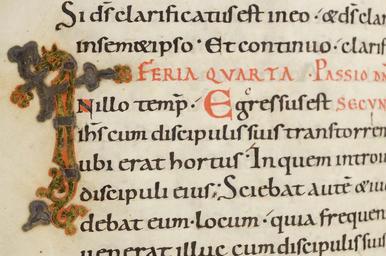 Si d̄s clarificatus est in eo · & d̄s clar
in semetipso · Et continuo · clarif
FERIA QUARTA · PASSIO D
IN illo temp̄ · Egressus est SECUN
ih̄s cum discipulis suis trans torren
ubi erat hortus · In quem introi
discipuli eius; Sciebat autē & iu
debat eum · locum · quia frequen
venerat illuc cum discipulis suis